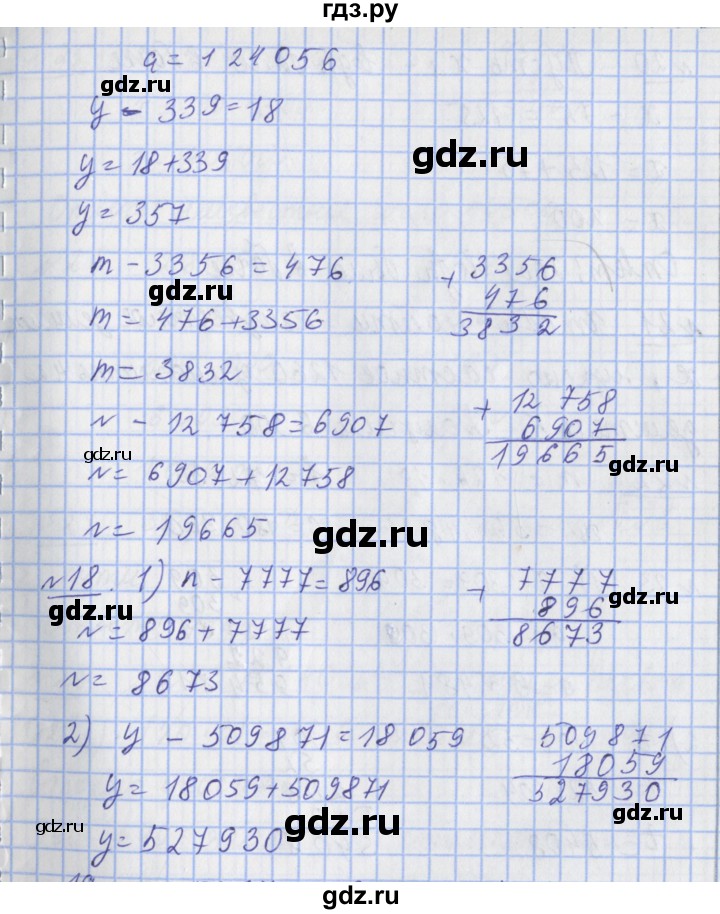 гдз.ру
a = 124056
gdz.ru
y - 339 = 18
gdz.ru
y = 18 + 339
y = 357
m - 3356 = 476
+ 3356
476
3832
gdz.ru
m = 476 + 3356
m = 3832
n - 12 758 = 6907
+ 12 758
6907
19665
gdz.ru
gdz.ru
n = 6907 + 12758
n = 19665
gdz.ru
№18. 1) n - 7777 = 896
+ 7777
896
8673
gdz.ru
gdz.ru
n = 896 + 7777
n = 8673
2) y - 509871 = 18 059
509871
18059
527930
y = 18059 + 509871
gdz.ru
gdz.ru
gdz.ru
y = 527930
gdz.ru
гдз.ру